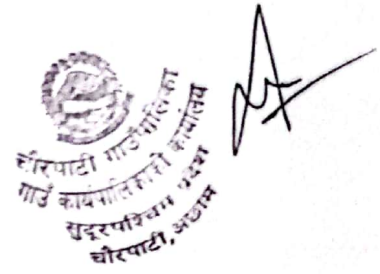 चौरपाटी गाउँपालिका
गाउँ कार्यपालिकाको कार्यालय
सुदूरपश्चिम प्रदेश
चौरपाटी, अछाम